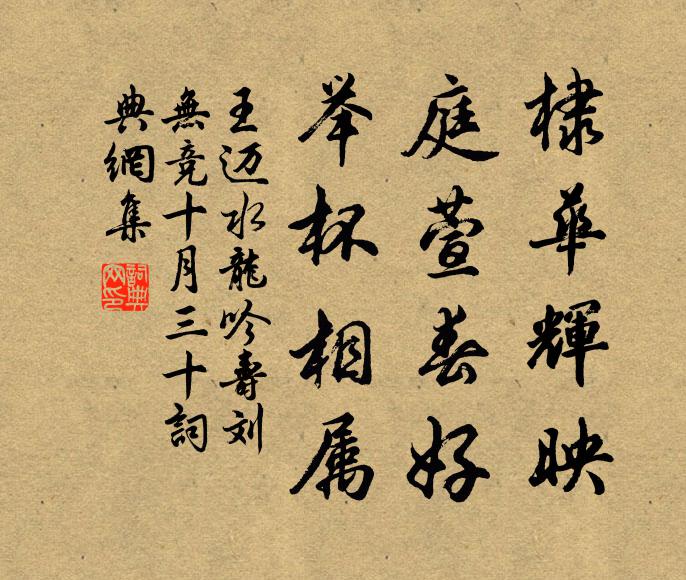 棣華輝映
庭萱春好
举杯相属
王迈水龍吟壽刘
無竞十月三十詞
典網集
詞典網印